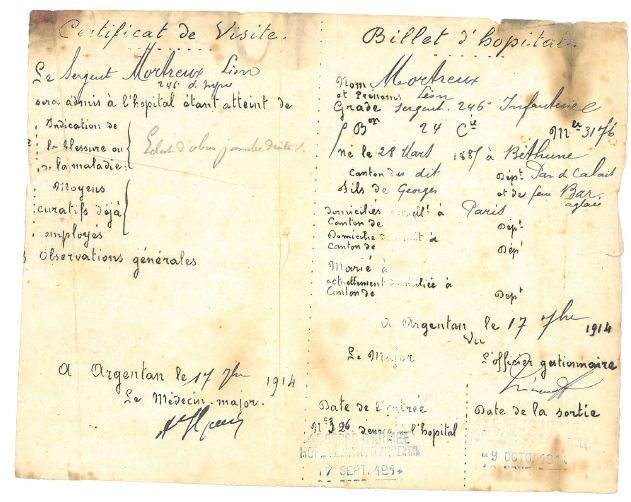 Certificat de Visite.
Le Sergent Mortreux Léon
246 d'Inf
sera admis à l'hopital étant atteint de
Indication de
la blessure ou
de la maladie
Eclat d'obus jambe droite
Moyens
curatifs déjà
employés
Observations générales
A Argentan le 17 7bre 1914
Le Médecin-major.
Billet d'hopital.
Nom Mortreux
et Prénoms Léon
Grade Sergent. 246e Infanterie
Bon 24 Cie Mle 3176
né le 28 Mars 188 à Béthune
Canton du dit Dépt Pas de Calais
fils de Georges et de feue Bar
domiciliés à Paris
Canton de Dépt
Domicilié à
Canton de Dépt
Marié à
actuellement domicilié à
Canton de Dépt
A Argentan le 17 7bre 1914
Vu
Le Major L'officier gestionnaire
Date de l'entrée Date de la sortie
N° 326 l'hopital
17 SEPT. 1914
9 OCTO. 191